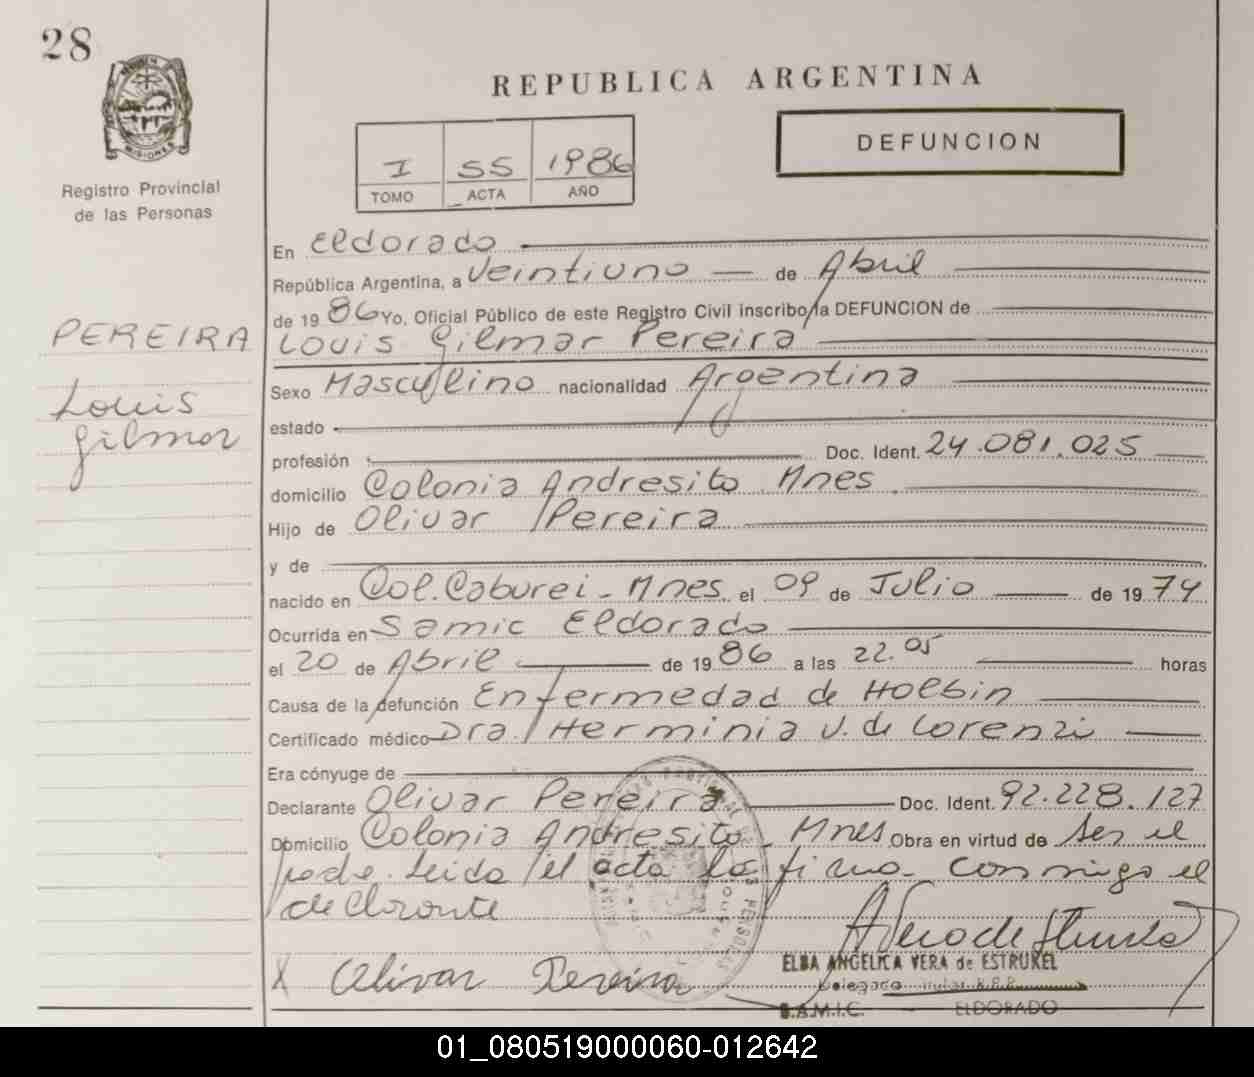 28
MISIONES
Registro Provincial
de las Personas
REPUBLICA ARGENTINA
I 55 1986
TOMO ACTA AÑO
DEFUNCION
PEREIRA
Louis
Gilmar
En Eldorado
República Argentina, a Veintiuno de Abril
de 1986 Yo, Oficial Público de este Registro Civil inscribo la DEFUNCION de
Louis Gilmar Pereira
Sexo Masculino nacionalidad Argentina
estado
profesión Doc. Ident. 24.081.025
domicilio Colonia Andresito Mnes
Hijo de Olivar Pereira
y de
nacido en Col. Caburei - Mnes. el 09 de Julio de 1974
Ocurrida en Samic Eldorado
el 20 de Abril de 1986 a las 22.05 horas
Causa de la defunción Enfermedad de Hoebin
Certificado médico Dra. Herminia V. de Lorenzi
Era cónyuge de
Declarante Olivar Pereira Doc. Ident. 92.228.127
Domicilio Colonia Andresito. Mnes Obra en virtud de ser el
padre. Leida el acta la firma conmigo el
declarante
X Olivar Pereira
ELBA ANGELICA VERA de ESTRUKEL
Delegada Titular R.P.P.
S.A.M.I.C. ELDORADO
01_080519000060-012642